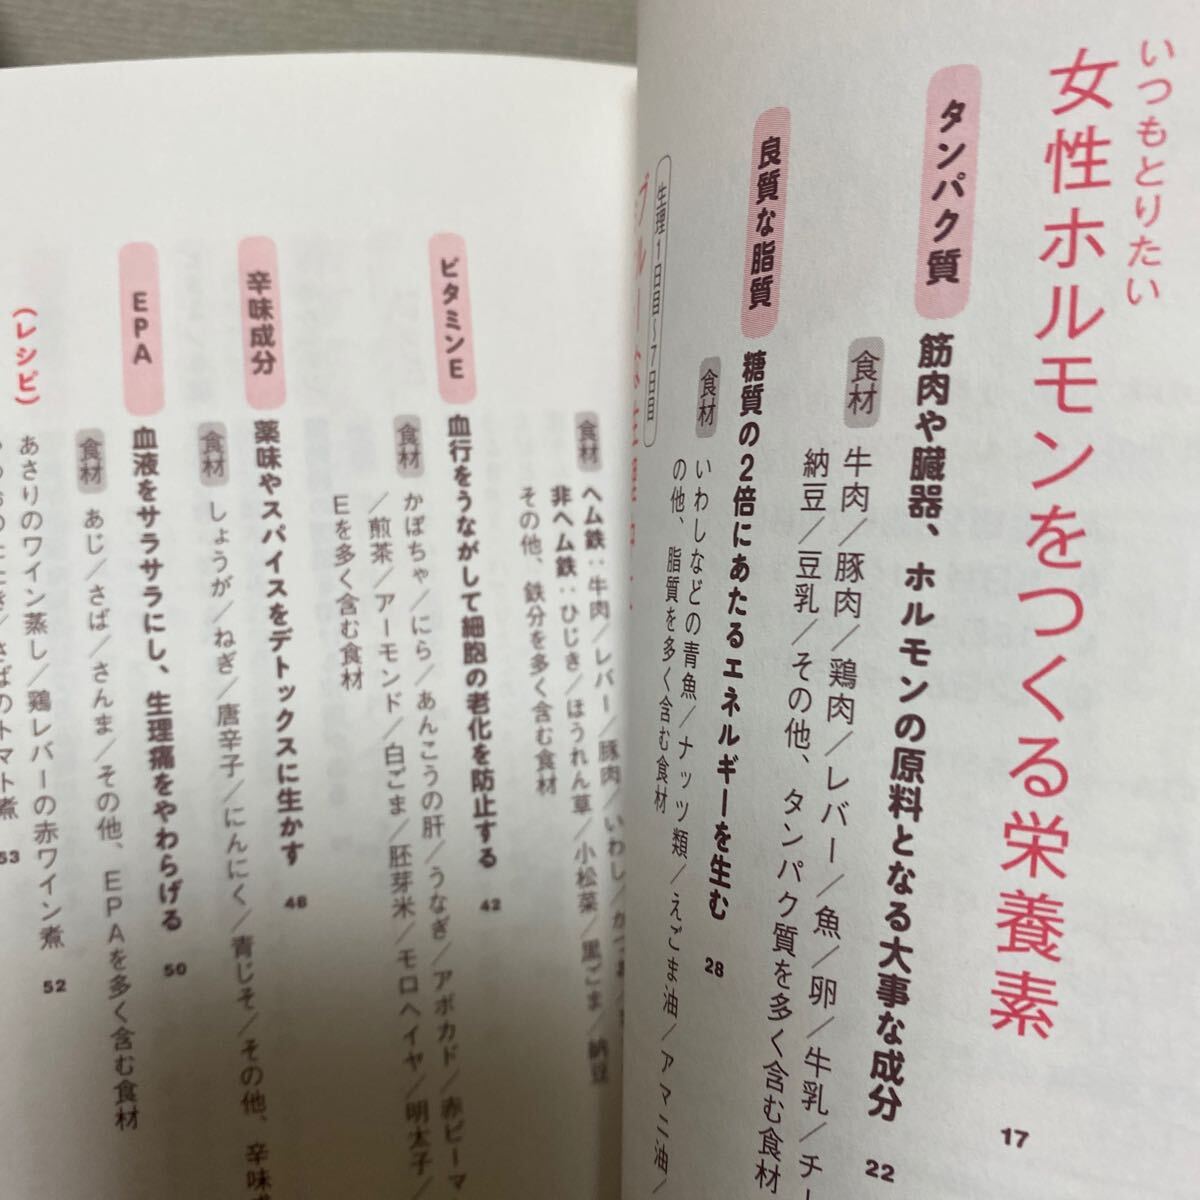 いつもとりたい
女性ホルモンをつくる栄養素
17
タンパク質
筋肉や臓器、ホルモンの原料となる大事な成分
22
食材
牛肉/豚肉/鶏肉/レバー/魚/卵/牛乳/チー
納豆/豆乳/その他、タンパク質を多く含む食材
良質な脂質
糖質の2倍にあたるエネルギーを生む
28
食材
いわしなどの青魚/ナッツ類/えごま油/アマニ油/
の他、脂質を多く含む食材
生理1日目〜7日目
食材
ヘム鉄:牛肉/レバー/豚肉/いわし/かつお/
非ヘム鉄:ひじき/ほうれん草/小松菜/黒ごま/納豆
その他、鉄分を多く含む食材
ビタミンE
血行をうながして細胞の老化を防止する
42
食材
かぼちゃ/にら/あんこうの肝/うなぎ/アボカド/赤ピーマ
/煎茶/アーモンド/白ごま/胚芽米/モロヘイヤ/明太子/
Eを多く含む食材
辛味成分
薬味やスパイスをデトックスに生かす
48
食材
しょうが/ねぎ/唐辛子/にんにく/青じそ/その他、辛味成
EPA
血液をサラサラにし、生理痛をやわらげる
50
食材
あじ/さば/さんま/その他、EPAを多く含む食材
(レシピ)
あさりのワイン蒸し/鶏レバーの赤ワイン煮
52
さばのトマト煮
53